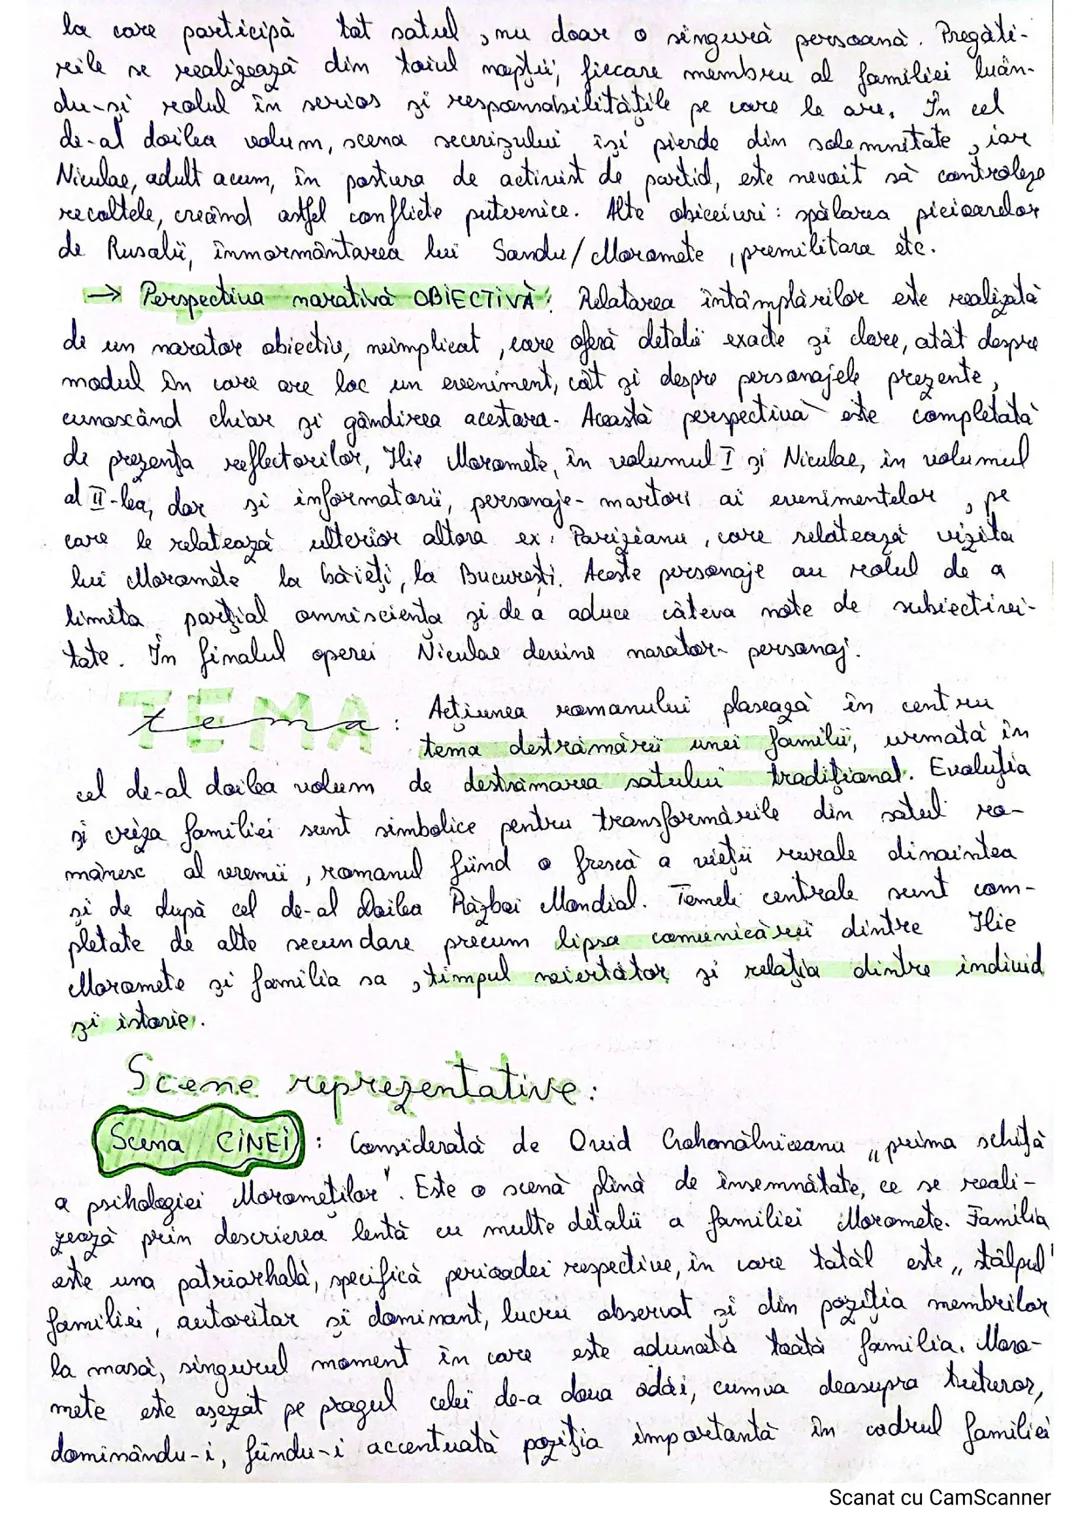 la care participă tot satul, nu doar o singură persoană. Pregăti-
rile se realizează din toiul nopții, fiecare membru al familiei luân-
du-și rolul în serios și responsabilitățile pe care le are. În cel
de-al doilea volum, scena secerișului își pierde din solemnitate, iar
Niculae, adult acum, în postura de activist de partid, este nevoit să controleze
recoltele, creând astfel conflicte puternice. Alte obiceiuri: spălarea picioarelor
de Rusalii, înmormântarea lui Sandu/Moromete, premilitara etc.
→ Perspectiva narativă OBIECTIVĂ: Relatarea întâmplărilor este realizată
de un narator obiectiv, neimplicat, care oferă detalii exacte și clare, atât despre
modul în care are loc un eveniment, cât și despre personajele prezente,
cunoscând chiar și gândirea acestora. Această perspectivă este completată
de prezența reflectorilor, Ilie Moromete, în volumul I și Niculae, în volumul
al II-lea, dar și informatorii, personaje-martori ai evenimentelor, pe
care le relatează ulterior altora ex: Parizianu, care relatează vizita
lui Moromete la băieți, la București. Aceste personaje au rolul de a
limita parțial omnisciența și de a aduce câteva note de subiectivi-
tate. În finalul operei Niculae devine narator-personaj.
TEMA
tema: Acțiunea romanului plasează în centru
tema destrămării unei familii, urmată în
cel de-al doilea volum de destrămarea satului tradițional. Evoluția
și criza familiei sunt simbolice pentru transformările din satul ro-
mânesc al vremii, romanul fiind o frescă a vieții rurale dinaintea
și de după cel de-al Doilea Război Mondial. Temele centrale sunt com-
pletate de alte secundare precum lipsa comunicării dintre Ilie
Moromete și familia sa, timpul neiertător și relația dintre individ
și istorie.
Scene reprezentative:
Scena CINEI: Considerată de Ovid Crohmălniceanu „prima schiță
a psihologiei Moromeților". Este o scenă plină de însemnătate, ce se reali-
zează prin descrierea lentă cu multe detalii a familiei Moromete. Familia
este una patriarhală, specifică perioadei respective, în care tatăl este „stâlpul"
familiei, autoritar și dominant, lucru observat și din poziția membrilor
la masă, singurul moment în care este adunată toată familia. Moro-
mete este așezat pe pragul celei de-a doua odăi, cumva deasupra tuturor,
dominându-i, fiindu-i accentuată poziția importantă în cadrul familiei
Scanat cu CamScanner